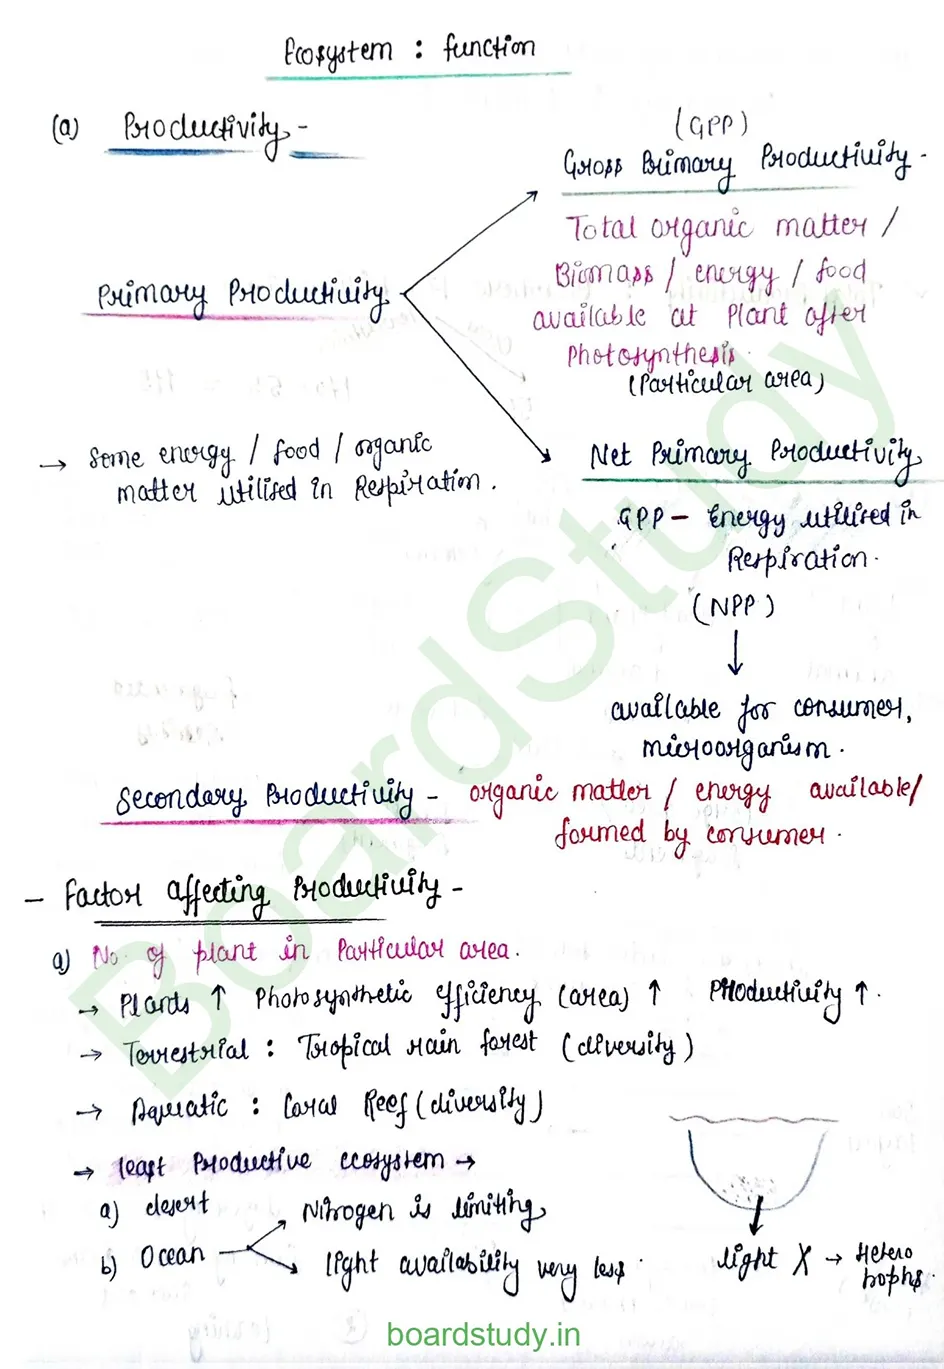 Ecosystem : function
(a) Productivity -
(GPP)
Gross Primary Productivity -
Total organic matter /
Biomass / energy / food
available at Plant after
Photosynthesis.
(Particular area)
Primary Productivity
→ Some energy / food / organic
matter utilised in Respiration.
Net Primary Productivity
GPP - Energy utilised in
Respiration.
(NPP)
↓
available for consumer,
microorganism.
Secondary Productivity - organic matter / energy available/
formed by consumer.
- Factor affecting Productivity -
a) No. of plant in Particular area.
→ Plants ↑ Photosynthetic efficiency (area) ↑ Productivity ↑.
→ Terrestrial : Tropical rain forest (diversity)
→ Aquatic : Coral Reef (diversity)
→ least Productive ecosystem →
a) desert
Nitrogen is limiting
b) Ocean
light availability very less.
light X → Hetero
trophs.
BoardStudy
boardstudy.in